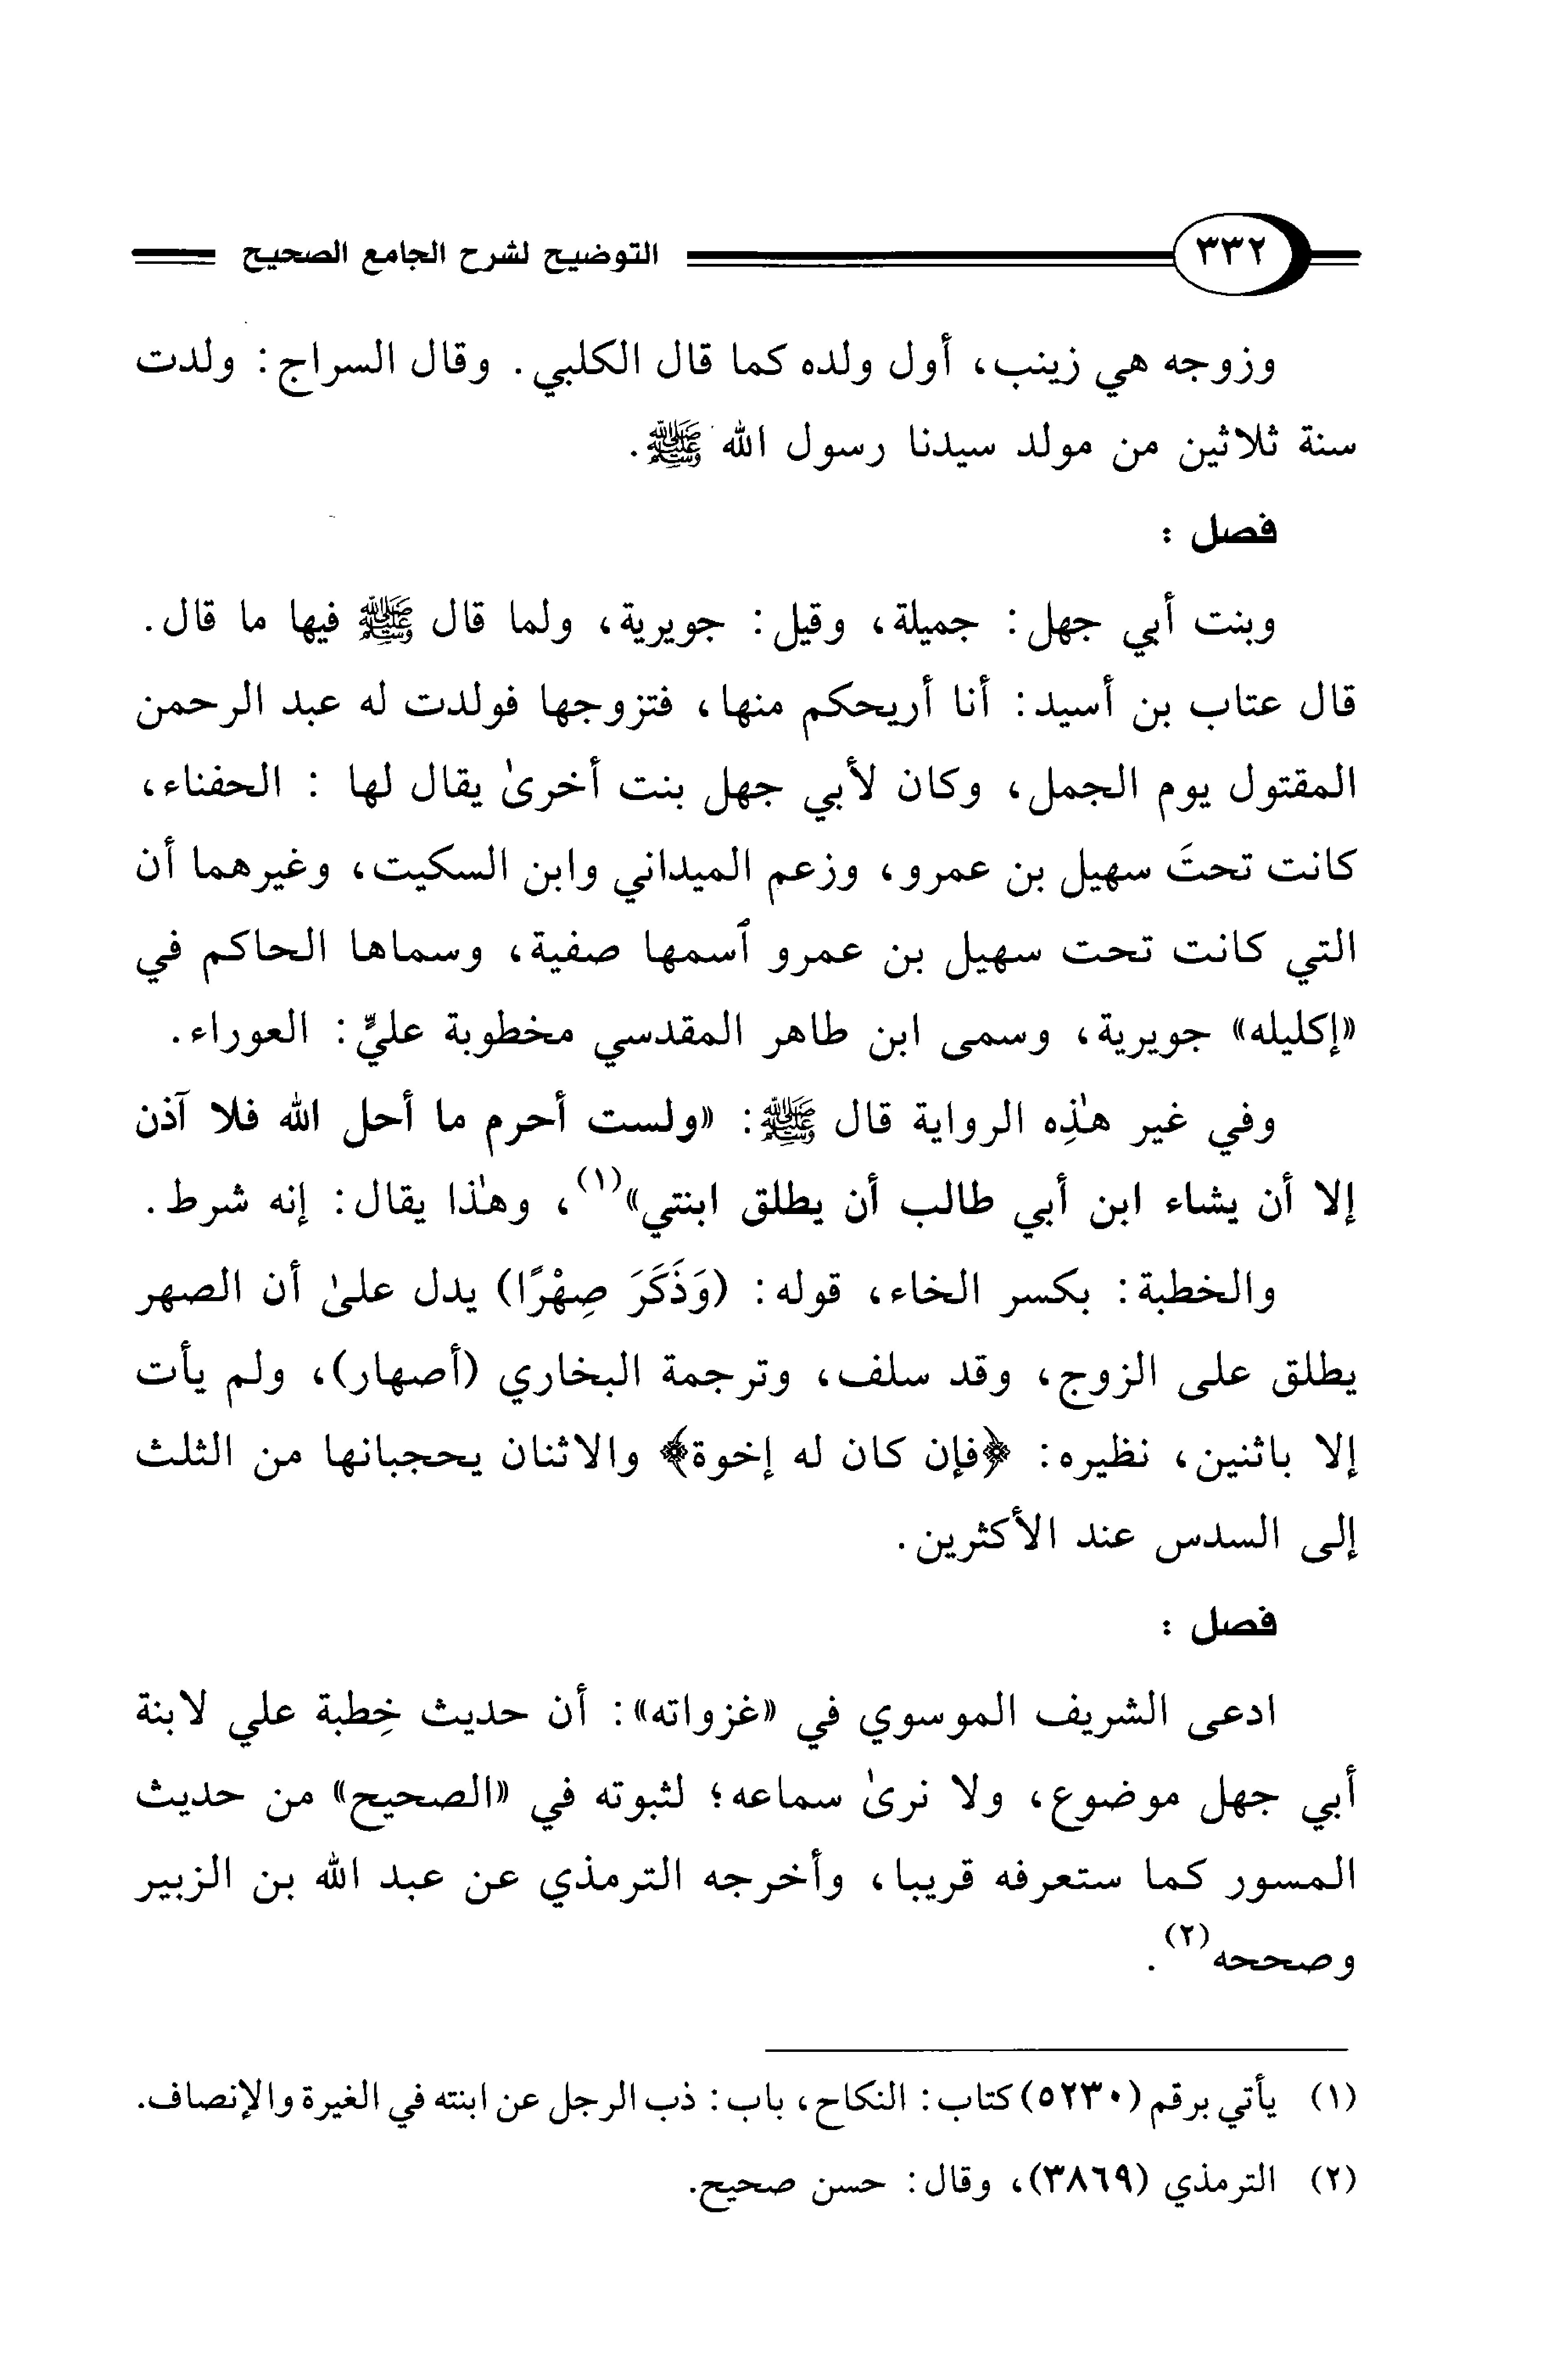 ٣٣٢ التوضيح لشرح الجامع الصحيح
وزوجه هي زينب، أول ولده كما قال الكلبي. وقال السراج: ولدت
سنة ثلاثين من مولد سيدنا رسول الله ﷺ.
فصل:
وبنت أبي جهل: جميلة، وقيل: جويرية، ولما قال ﷺ فيها ما قال.
قال عتاب بن أسيد: أنا أريحكم منها، فتزوجها فولدت له عبد الرحمن
المقتول يوم الجمل، وكان لأبي جهل بنت أخرىٰ يقال لها : الحفناء،
كانت تحتَ سهيل بن عمرو، وزعم الميداني وابن السكيت، وغيرهما أن
التي كانت تحت سهيل بن عمرو ٱسمها صفية، وسماها الحاكم في
«إكليله» جويرية، وسمى ابن طاهر المقدسي مخطوبة عليٍّ: العوراء.
وفي غير هٰذِه الرواية قال ﷺ: «ولست أحرم ما أحل الله فلا آذن
إلا أن يشاء ابن أبي طالب أن يطلق ابنتي»(١)، وهٰذا يقال: إنه شرط.
والخطبة: بكسر الخاء، قوله: (وَذَكَرَ صِهْرًا) يدل علىٰ أن الصهر
يطلق على الزوج، وقد سلف، وترجمة البخاري (أصهار)، ولم يأت
إلا باثنين، نظيره: ﴿فإن كان له إخوة﴾ والاثنان يحجبانها من الثلث
إلى السدس عند الأكثرين.
فصل:
ادعى الشريف الموسوي في «غزواته»: أن حديث خِطبة علي لابنة
أبي جهل موضوع، ولا نرىٰ سماعه؛ لثبوته في «الصحيح» من حديث
المسور كما ستعرفه قريبا، وأخرجه الترمذي عن عبد الله بن الزبير
وصححه(٢).
(١) يأتي برقم (٥٢٣٠) كتاب: النكاح، باب: ذب الرجل عن ابنته في الغيرة والإنصاف.
(٢) الترمذي (٣٨٦٩)، وقال: حسن صحيح.